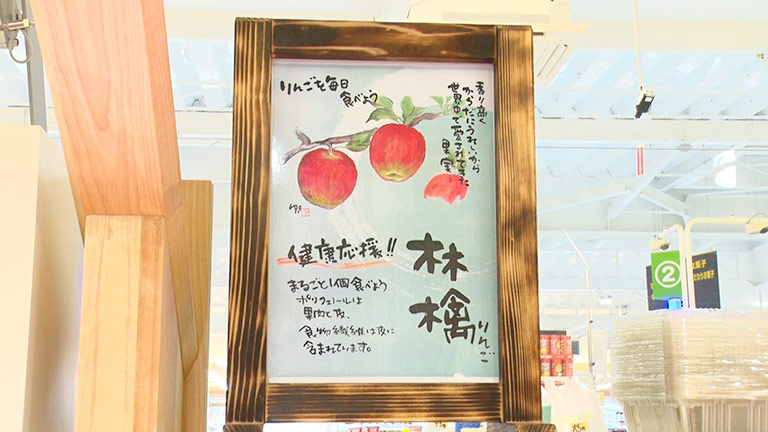 りんごを毎日
食べよう
香り高く
からだにうれしいから
世界中で愛されてきた
果実
健康応援!!
まるごと1個食べよう
ポリフェノールは
果肉と皮、
食物繊維は皮に
含まれています。
林檎
りんご
2